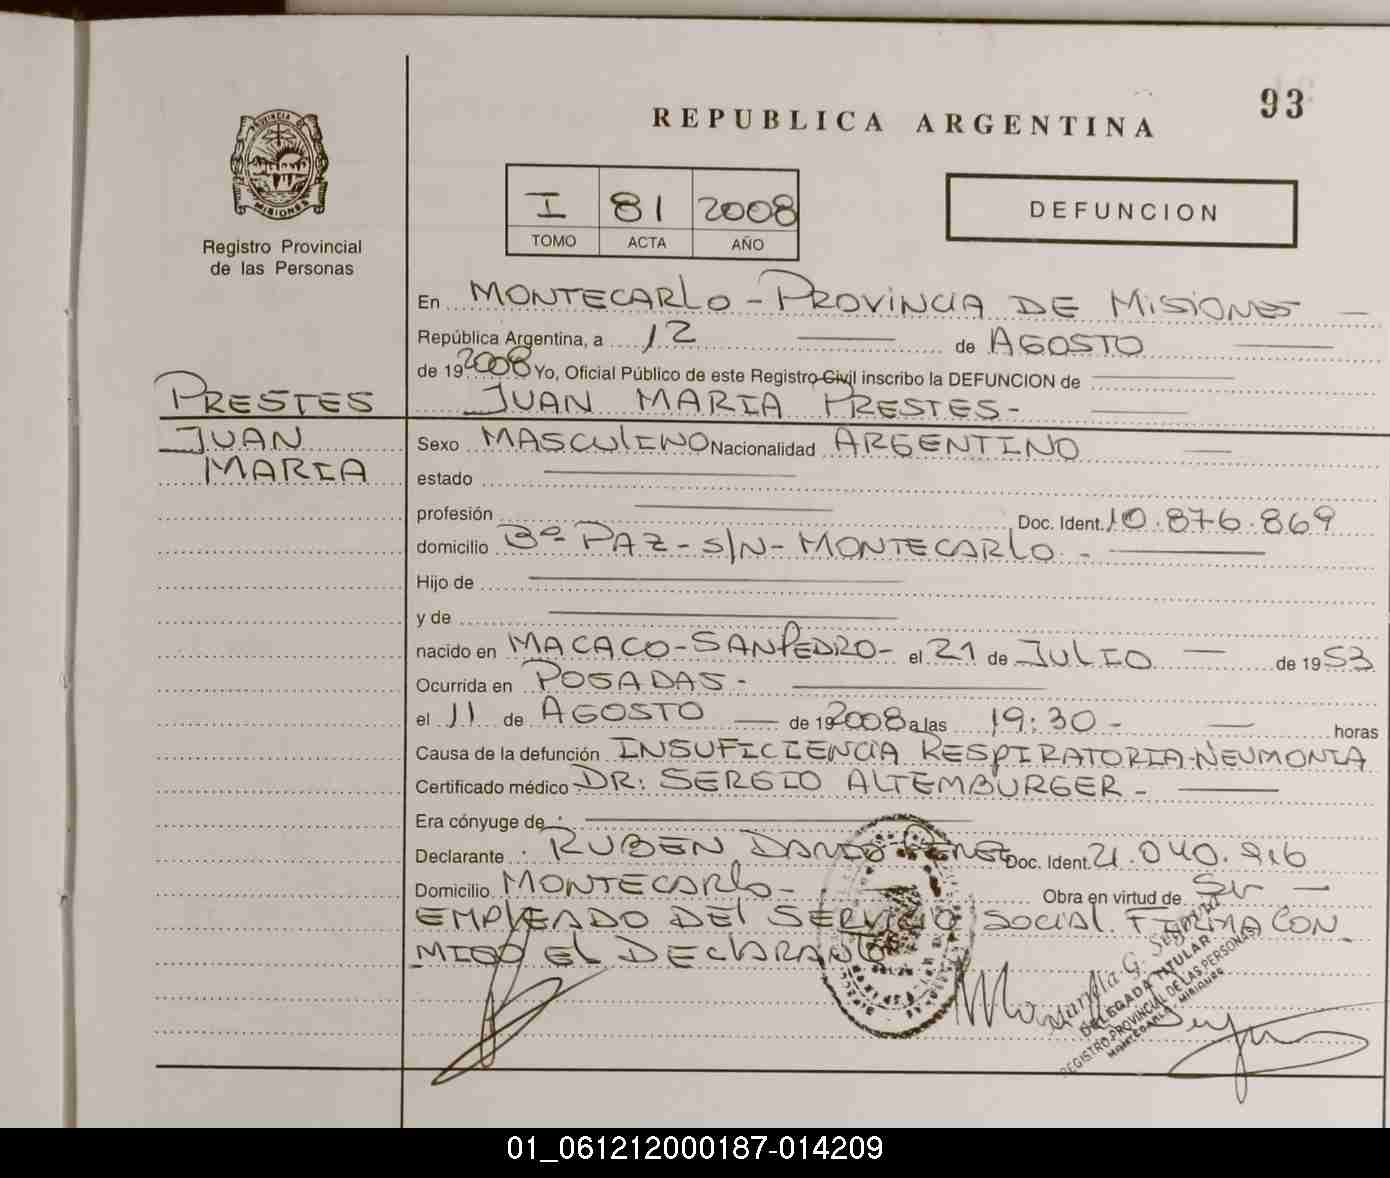 93
REPUBLICA ARGENTINA
PROVINCIA DE
MISIONES
Registro Provincial
de las Personas
I 81 2008
TOMO ACTA AÑO
DEFUNCION
En MONTECARLO - PROVINCIA DE MISIONES -
República Argentina, a 12 de AGOSTO
de 19 2008 Yo, Oficial Público de este Registro Civil inscribo la DEFUNCION de
JUAN MARIA PRESTES-
PRESTES
JUAN
MARIA
Sexo MASCULINO Nacionalidad ARGENTINO
estado
profesión Doc. Ident. 10.876.869
domicilio Bº PAZ - S/N - MONTECARLO -
Hijo de
y de
nacido en MACACO - SAN PEDRO - el 21 de JULIO de 1953
Ocurrida en POSADAS -
el 11 de AGOSTO de 19 2008 a las 19:30 - horas
Causa de la defunción INSUFICIENCIA RESPIRATORIA-NEUMONIA
Certificado médico DR: SERGIO ALTEMBURGER -
Era cónyuge de
Declarante RUBEN DARIO Doc. Ident. 21.040.916
Domicilio MONTECARLO - Obra en virtud de Su -
EMPLEADO DEL SERVICIO SOCIAL. FIRMA CON
MIGO EL DECLARANTE
G. Segovia
DELEGADA TITULAR
REGISTRO PROVINCIAL DE LAS PERSONAS
MONTECARLO - MISIONES
01_061212000187-014209